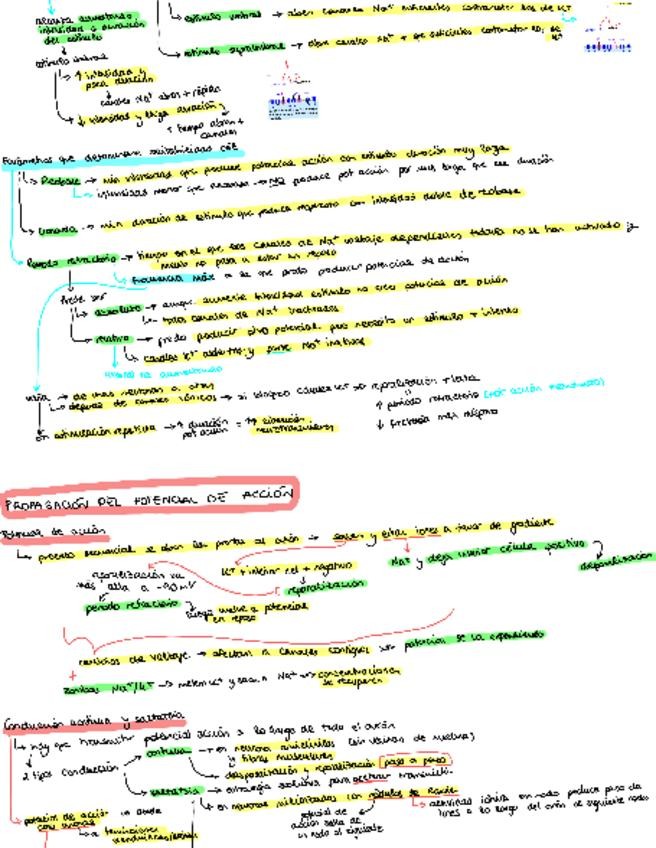 alcanza aumentando
intensidad o duración
del estímulo
estímulo umbral → abren canales Na⁺ suficientes contrarrestar los de K⁺
estímulo umbral
estímulo supraumbral → abre canales Na⁺ + que suficientes contrarrestar los de K⁺
↑ intensidad y
poca duración
canales Na⁺ abren + rápido
↓ intensidad y larga duración
↑ tiempo abren +
canales
Parámetros que determinan excitabilidad cél
Reobase → mín intensidad que produce potencial acción con estímulo duración muy larga
intensidad menor que reobase → NO produce pot acción por muy larga que sea duración
Cronaxia → mín duración de estímulo que produce respuesta con intensidad doble de reobase
Periodo refractario → tiempo en el que los canales de Na⁺ voltaje dependientes todavía no se han activado y
no pasa a estar en reposo
frecuencia máx a la que puedo producir potenciales de acción
Puede ser
absoluto → aunque aumente intensidad estímulo no creo potencial de acción
todos canales de Na⁺ inactivados
relativo → puedo producir otro potencial pero necesito un estímulo + intenso
canales K⁺ abiertos y parte Na⁺ inactivos
varía → de unas neuronas a otras
depende de canales iónicos → si bloqueo canales K⁺ → repolarización + lenta
↑ periodo refractario (pot acción
↓ frecuencia máx
en estimulación repetitiva → ↑ duración
pot acción = ↑↑ liberación
neurotransmisores
PROPAGACIÓN DEL POTENCIAL DE ACCIÓN
Potencial de acción
proceso secuencial se abren las puertas al axón → salen y entran iones a favor de gradiente
K⁺ → interior cel + negativo
Na⁺ y deja interior célula positivo
despolarización
repolarización
repolarización va
más allá a -90 mV
periodo refractario
luego vuelve a potencial
en reposo
cambios de voltaje → afectan a canales contiguos → potencial se va expandiendo
+
bombas Na⁺/K⁺ → meten K⁺ y sacan Na⁺ → concentraciones
se recuperen
Conducción continua y saltatoria
hay que transmitir potencial acción a lo largo de todo el axón
2 tipos conducción
continua → en neuronas amielínicas (sin vainas de mielina)
y fibras musculares
despolarización y repolarización paso a paso
saltatoria → estrategia evolutiva para acelerar transmisión
en neuronas mielinizadas con nódulos de Ranvier
actividad iónica en nodo produce paso de
iones a lo largo del axón al siguiente nodo
potencial de
acción salta de
un nodo al siguiente
potencial de acción
a terminaciones